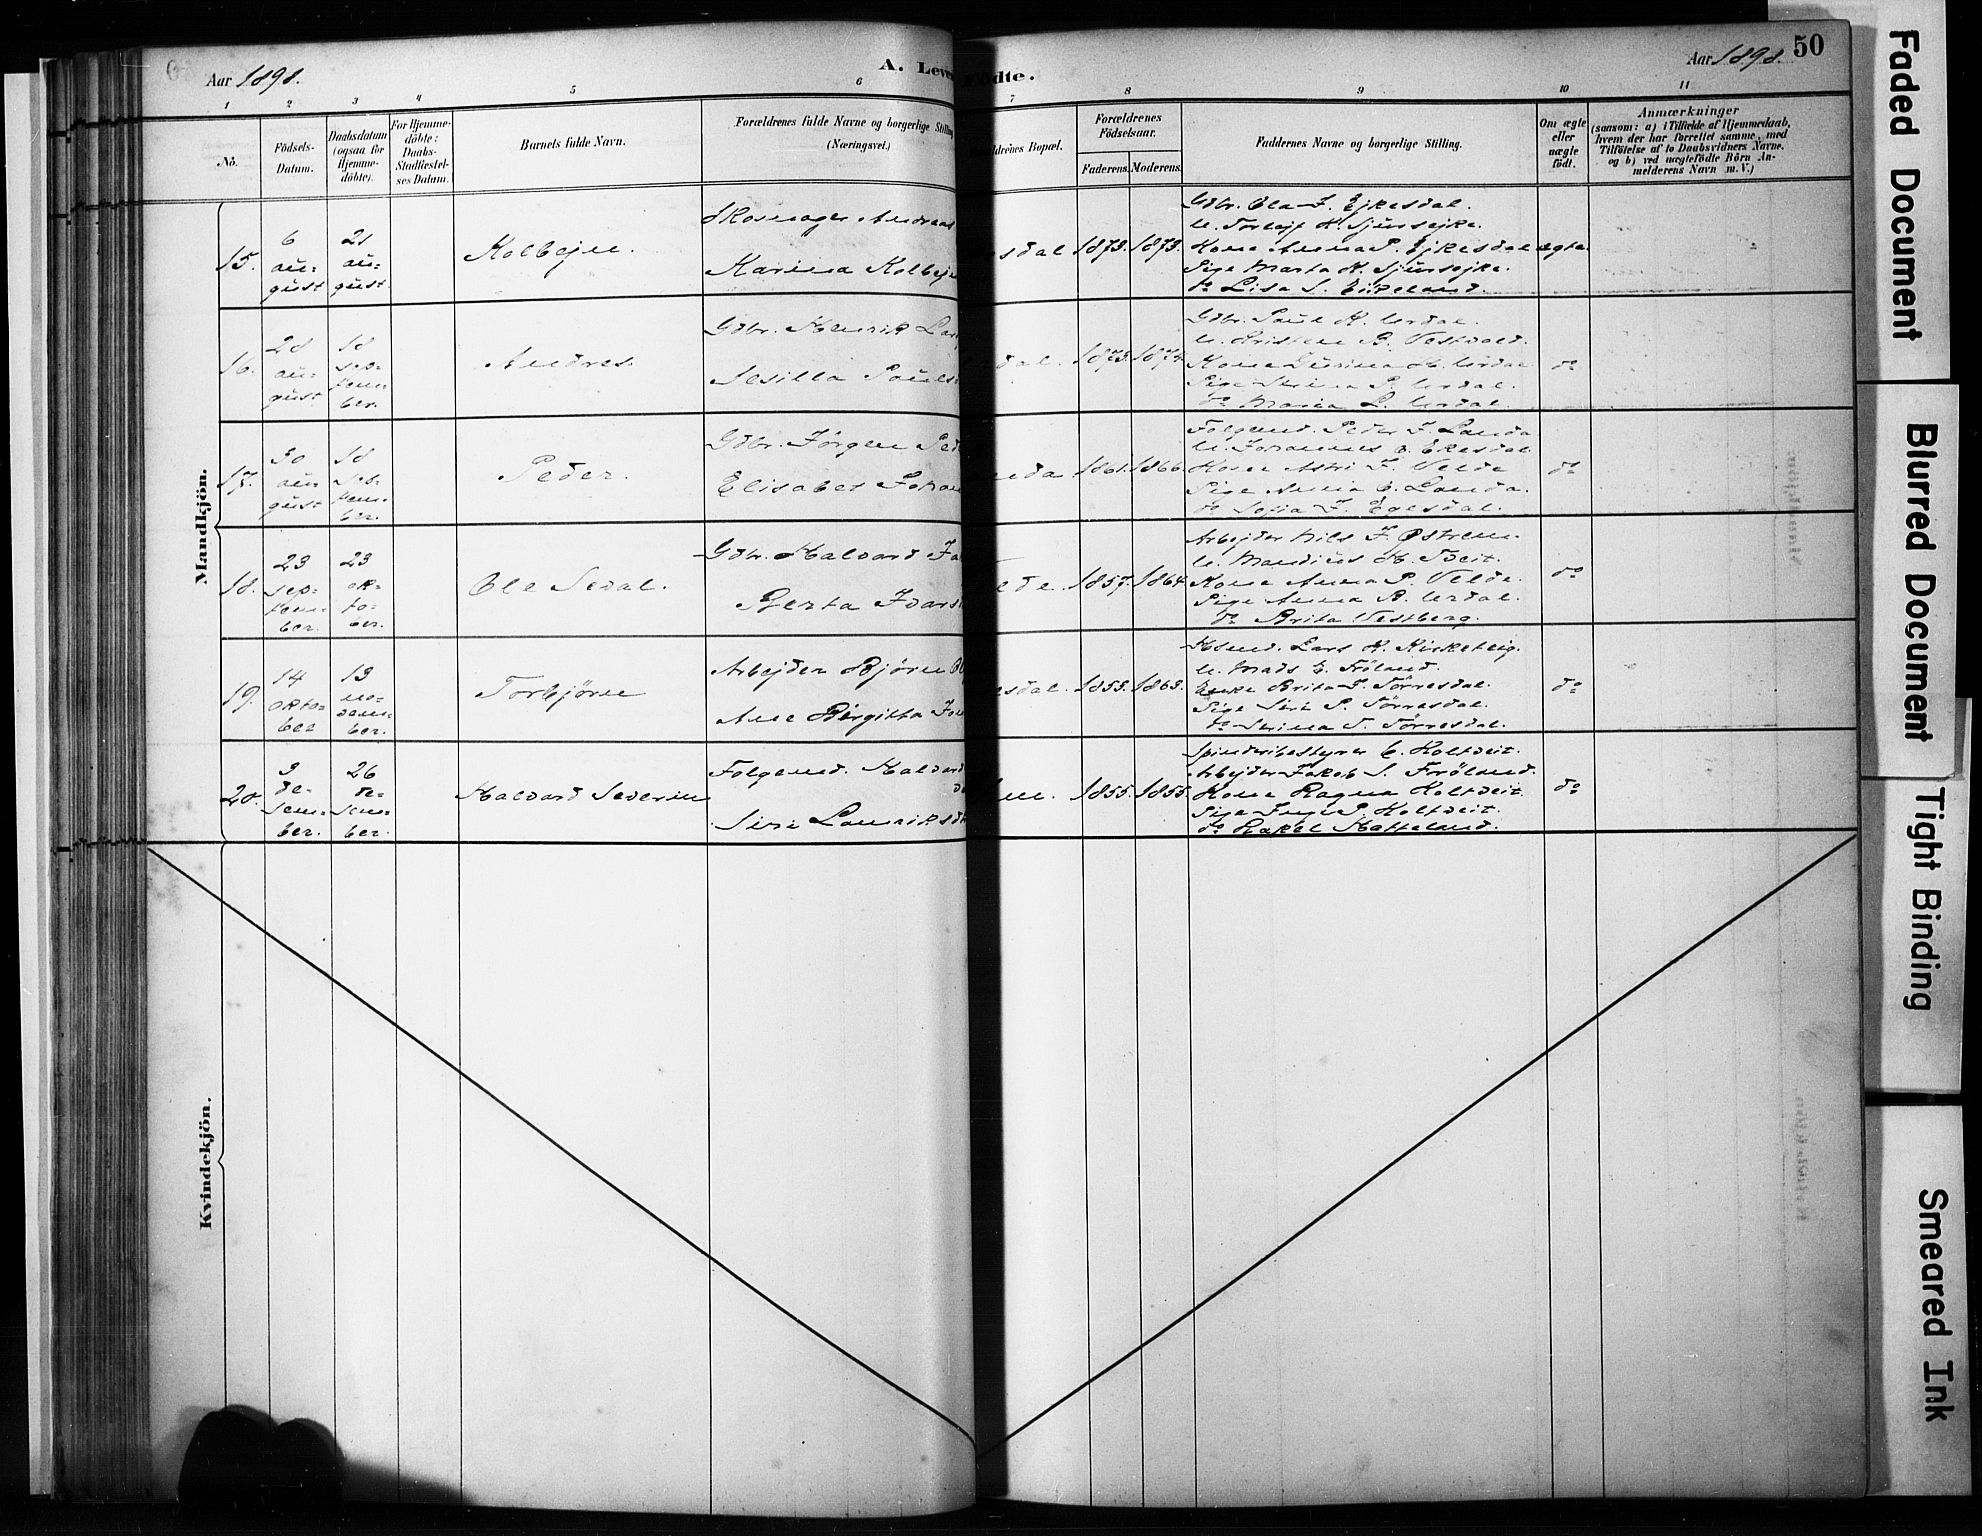 Aar 1898.
A. Leve
Födte.
Aar 1898.
50
1 2 3 4 5 6 7 8 9 10 11
No.
Födsels-
Datum.
Daabsdatum
(ogsaa for
Hjemme-
döbte).
For Hjemme-
döbte:
Daabs-
Stadfæstel-
ses Datum.
Barnets fulde Navn.
Forældrenes fulde Navne og borgerlige Stilling
(Næringsvei.)
Forældrenes Bopæl.
Forældrenes
Födselsaar.
Faderens. Moderens.
Faddernes Navne og borgerlige Stilling.
Om ægte
eller
uægte
födt.
Anmærkninger
(saasom: a) i Tilfælde af Hjemmedaab,
hvem der har forrettet samme, med
Tilföielse af to Daabsvidners Navne,
og b) ved uægtefödte Börn An-
melderens Navn m.V.)
Mandkjön.
15.
6
au-
gust
21
au-
gust
Kolbejn.
Skomager Andreas
Karina Kolbejn
sdal
1873. 1873.
Gdbr. Ola J. Ejkesdal.
U. Torlejf K. Sjursejke.
Kone Anna P. Ejkesdal
Pige Marta K. Sjursejke.
do Lisa S. Eikeland.
ægte.
16.
28
au-
gust
18
sep-
tem-
ber.
Andres.
Gdbr. Henrik Lar
Sesilla Pouls
dal.
1873. 1874.
Gdbr. Poul H. Urdal.
U. Kristen B. Vestvold.
Kone H. Urdal
Pige Serina P. Urdal.
do Maria L. Urdal.
do
17.
30
au-
gust
18
sep-
tem-
ber.
Peder.
Gdbr. Jörgen Ped
Elisabet Johan
anda
1861. 1866.
Folgemd. Peder J. Landa
U. Johannes E. Ekesdal
Kone Astri J. Velde
Pige Anna E. Landa.
do Sofia J. Egesdal.
do
18.
23
sep-
tem-
ber.
23
ok-
to-
ber.
Ole Sedal.
Gdbr. Halvard Ja
Berta Ivars
elde.
1857. 1864.
Arbejder Nils J. Østrem.
U. Mandius H. Tveit.
Kone Anna P. Velde.
Pige Anna B. Urdal.
do Brita Vestberg.
do
19.
14
okto-
ber
13
no-
vem-
ber.
Torbjörn
Arbejder Björn Ol
Ane Birgitta Jon
esdal.
1853. 1863.
Husmd. Lars K. Kirketeig.
U. Mads E. Fröland.
Enke Brita J. Tørresdal.
Pige Siri P. Tørresdal.
do Serina T. Tørresdal.
do
20.
3
de-
sem-
ber.
26
de-
sem-
ber.
Halvard Severin
Folgemd. Halvard
Siri Lauriksd
1855. 1855.
Spinderibestyrer E. Holtveit.
Arbejder Jakob S. Fröland.
Kone Ragna Holtveit.
Pige Inge P. Holtveit.
do Rakel Hatteland.
do
Kvindekjön.
Faded Document
Blurred Document
Tight Binding
Smeared Ink